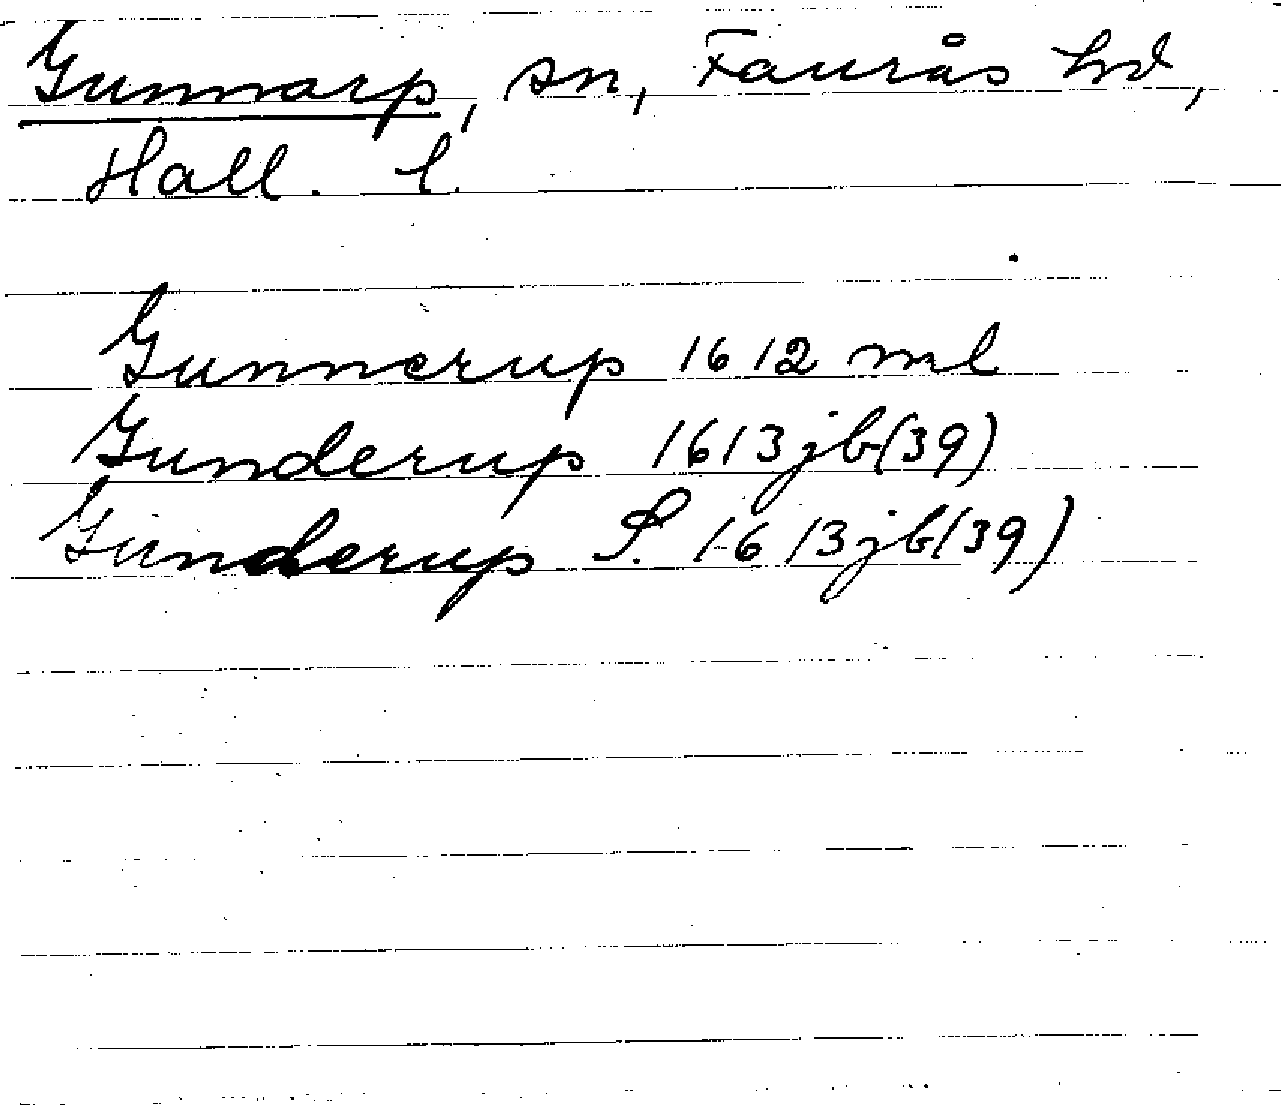 Gunnarp, sn, Faurås hd,
Hall. l.
Gunnerup 1612 ml
Gunderup 1613 jb (39)
Gunderup S. 1613 jb (39)